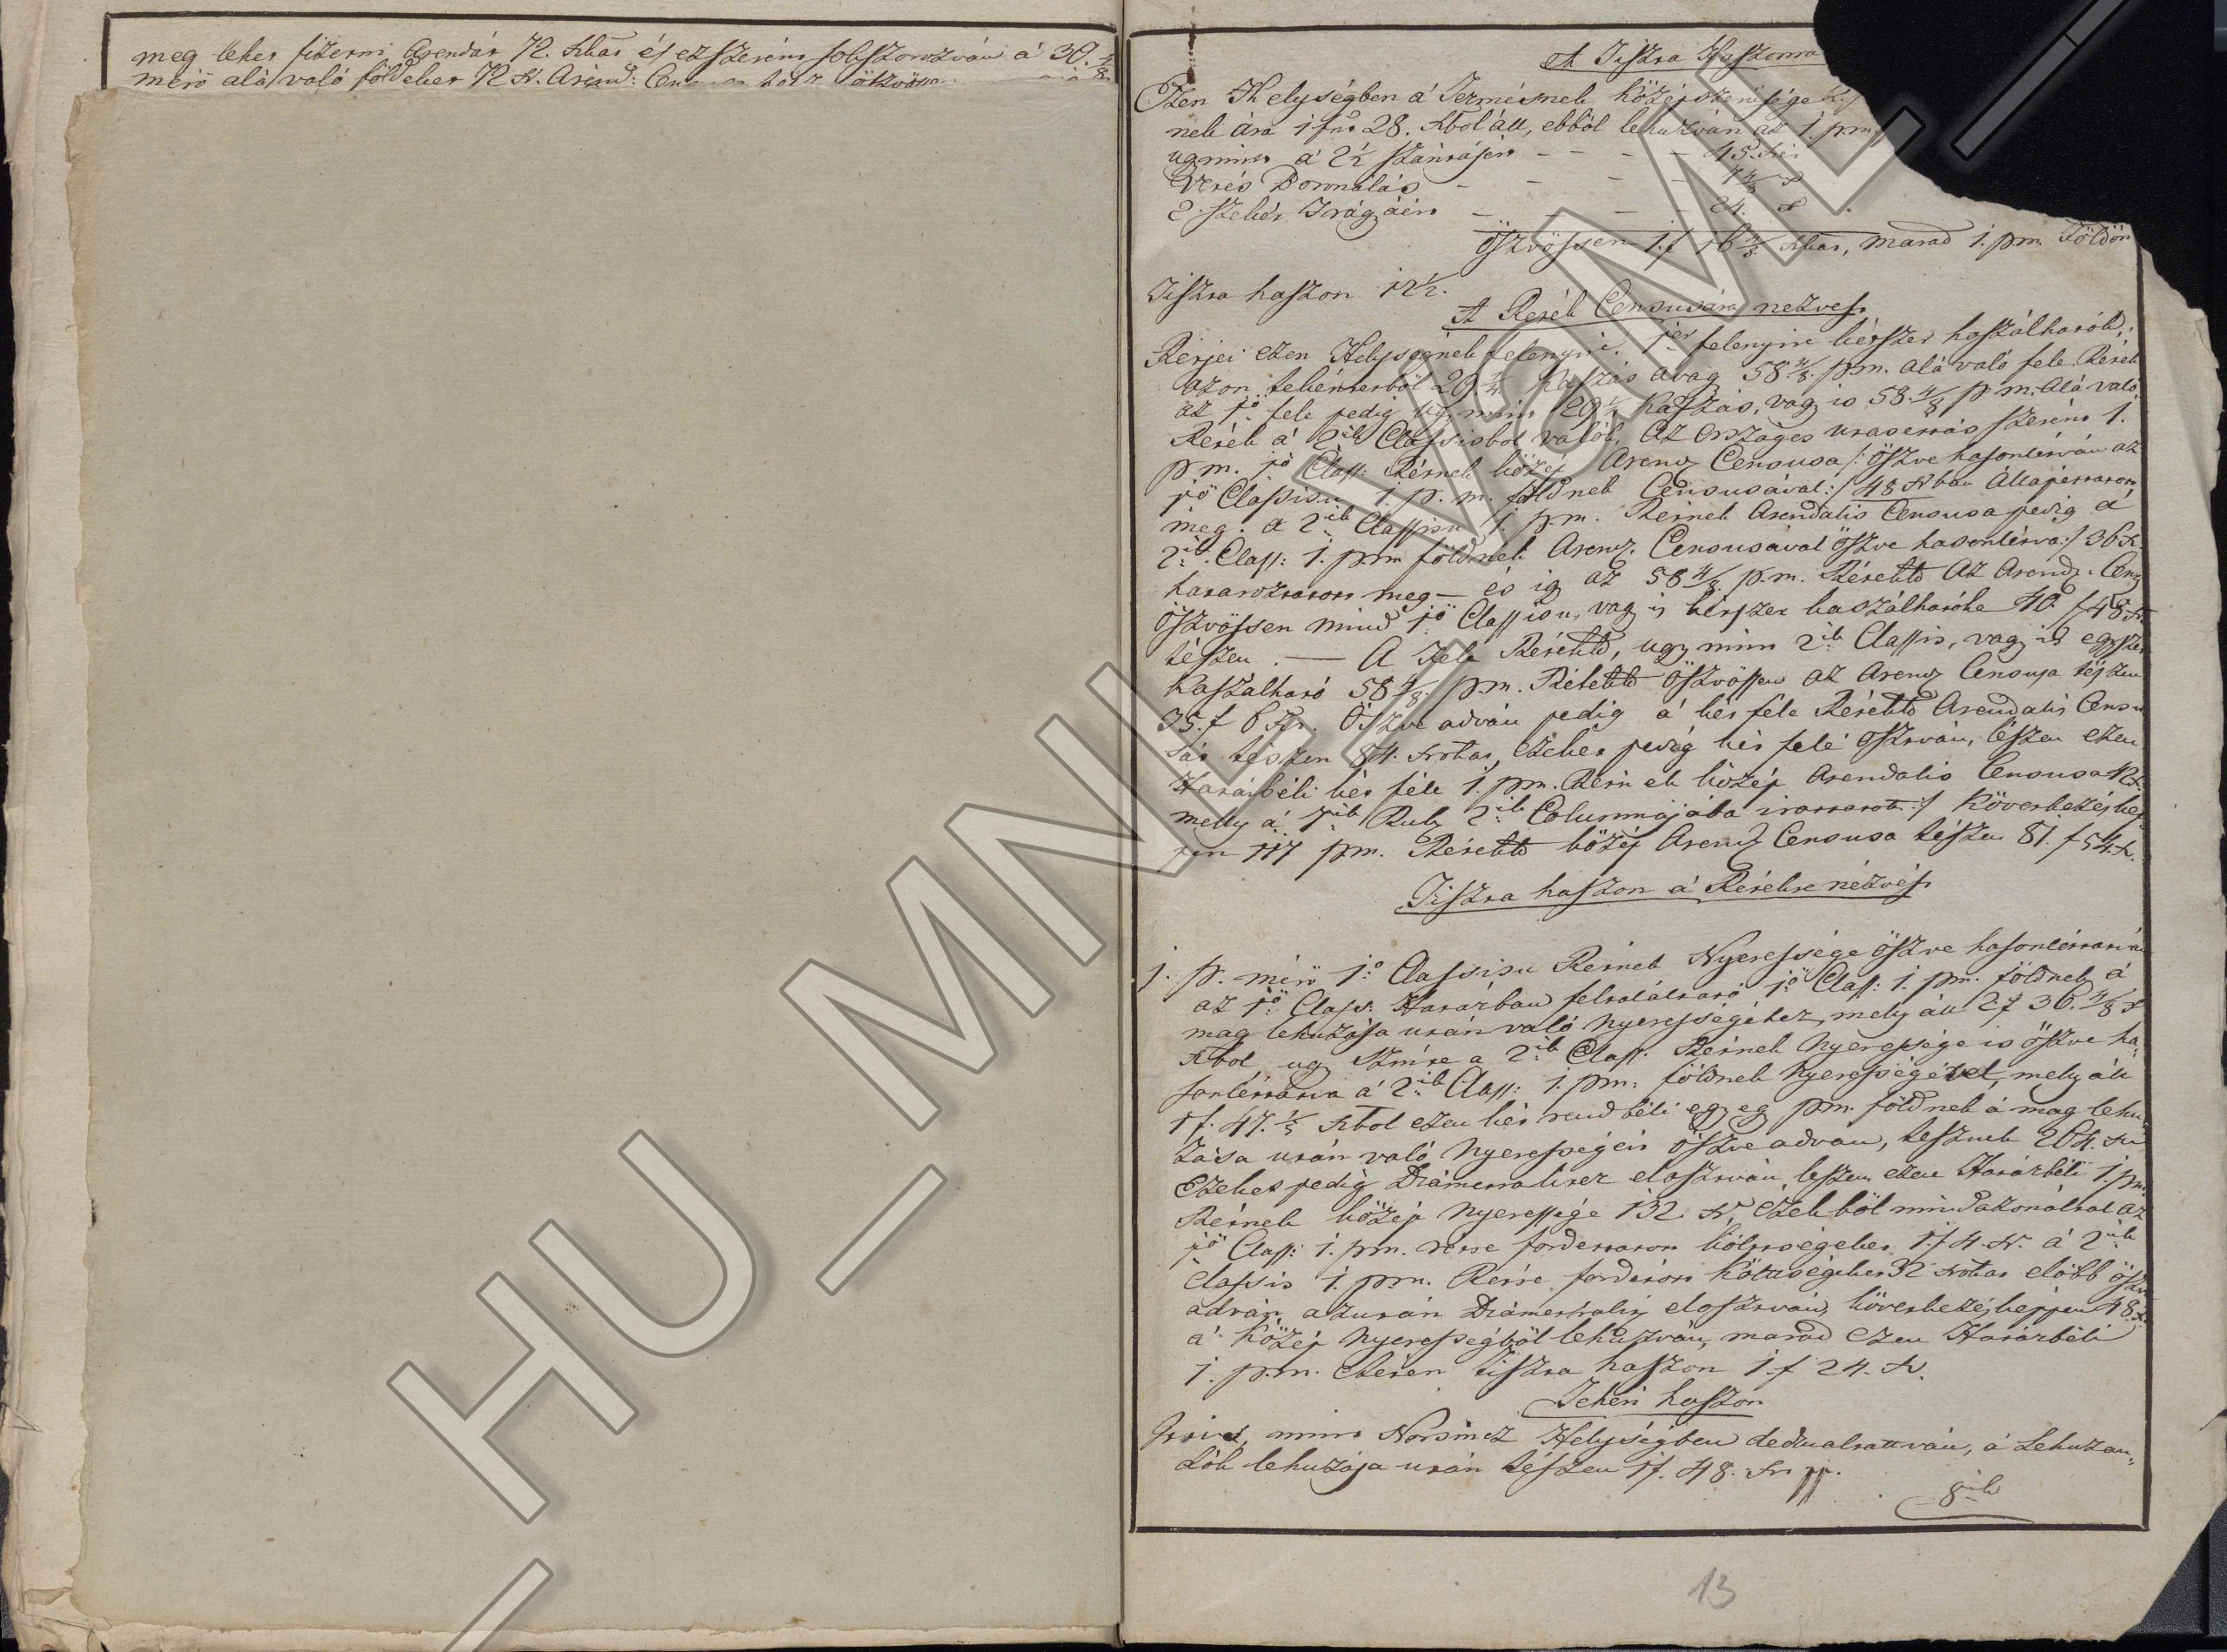 meg lehet fizetni Arendát 72. Xrbae és ezszerént sokszorozván á 30. 4/8
mérö alá való földeket 72 Xr. Arend:
A Tiszta Haszonra
Ezen Helységben á Termésnek középszerüsége
nek ára 1 fnt 28. Xrbol áll, ebböl lehuzván az 1. pm.
ugymint á 2½ szántásért – – – – 45. Xrt
Vetés Boronálás – – – – 7 4/8 X
2. szekér Trágyáért – – – – 24. X
öszvössen 1. f 16 4/8 Xrbae, marad 1. pm. Földön
Tiszta haszon 12½.
A Rétek Censusára nézvést
Rétjei ezen Helységnek felenyire felenyire kétszer haszálhatók,
azon tekéntetböl 29 ¼ kaszás avagy 58 4/8. pm. alá való fele Rétek
az 1ö fele pedig ugy mint 29 ¼ kaszás, vagy is 58. 4/8 pm. alá való
Rétek á 2ik Classisbol valók. Az Országos utasittás szerént 1.
pm. 1ö Class: Rétnek közép Arend Censusa /: öszve hasonlétván az
1ö Classisu 1 p. m. földnek Censusával :/ 48 Xrbae állapittatott
meg. a 2ik Classisu 1. pm. Rétnek Arendalis Censusa pedig á
2ik Class: 1. pm földnek Arend. Censusával öszve hasonlétva :/ 36 Xr.
határoztatott meg – és igy az 58 4/8 p.m. Réteknek Az Arend. Cens
öszvössen mind 1ö Classisu, vagy is kétszer kaszálhatóke 46 f 48 Xr.
tészen. — A Fele Réteknek, ugy mint 2ik Classis, vagy is egyszer
kaszálható 58 4/8. p.m. Réteknek öszvössen az Arend Censusa tészen
35. f 6 Xr. Öszve adván pedig á két féle Réteknek Arendalis Censu
sát tészen 84. Xrokat, ezeket pedig két felé osztván, lészen ezen
Határbéli két féle 1. pm. Rétnek közép Arendalis Censusa 42 X.
melly á 7ik Rub 2ik Columnájába irattatott :/ Következésképp
pen 117 pm. Réteknek közép Arend Censusa tészen 81. f 54. Xr.
Tiszta haszon á Rétekre nézvést
1. p. mérö 1ö Classisu Rétnek Nyeressége öszve hasonléttatván
az 1ö Class. Határban feltaláltató 1ö Class: 1. pm. földnek á
mag lehuzása után való nyerességéhez, mely áll 2. f 36. 4/8 X
Xrbol, ugy szintén a 2ik Class. Rétnek Nyeressége is öszve ha-
sonléttatva á 2ik Class: 1. pm: földnek Nyerességével, mely áll
1 f. 47. ½ Xrbol ezen két rendbéli egy egy pm. földnek á mag lehu-
zása után való Nyerességeit öszve adván, tesznek 264. Xr
Ezeket pedig Diametraliter elosztván, leszen ezen Határbéli 1. pm.
Rétnek közép Nyeressége 132. Xr, ezek böl mindazonáltal az
1ö Class: 1. pm. rétre fordettatott költségeket 1. f 4. Xr. á 2ik
Classis 1. pm. Rétre fordétott Költségeket 32 Xrokat elöbb öszve
adván, azután Diametraliter elosztván, következésképpen 48 X.
á közép Nyerességböl lehuzván, marad ezen Határbéli
1. p.m. Réten tiszta haszon 1. f 24. Xr.
Tehén haszon
mint Helységben dedualtattván, á Lehuzan-
dók lehuzása után tészen 1 f. 48. Xr pp.
8ik
13
HU_MNL_VSML_I